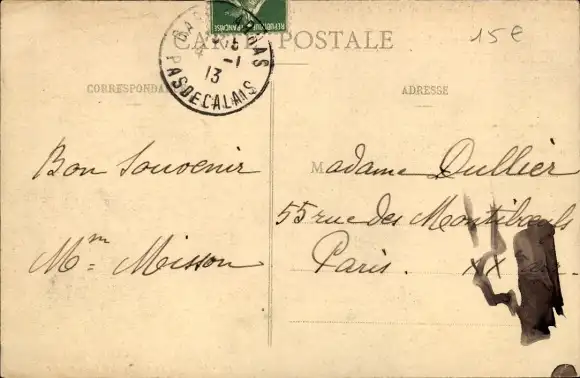 CARTE POSTALE
15€
RÉPUBLIQUE FRANÇAISE
ARRAS
-1
13
PAS DE CALAIS
CORRESPONDANCE
ADRESSE
Bon Souvenir
Mme Misson
Madame Dullier
55 rue des Montibœufs
Paris. XX